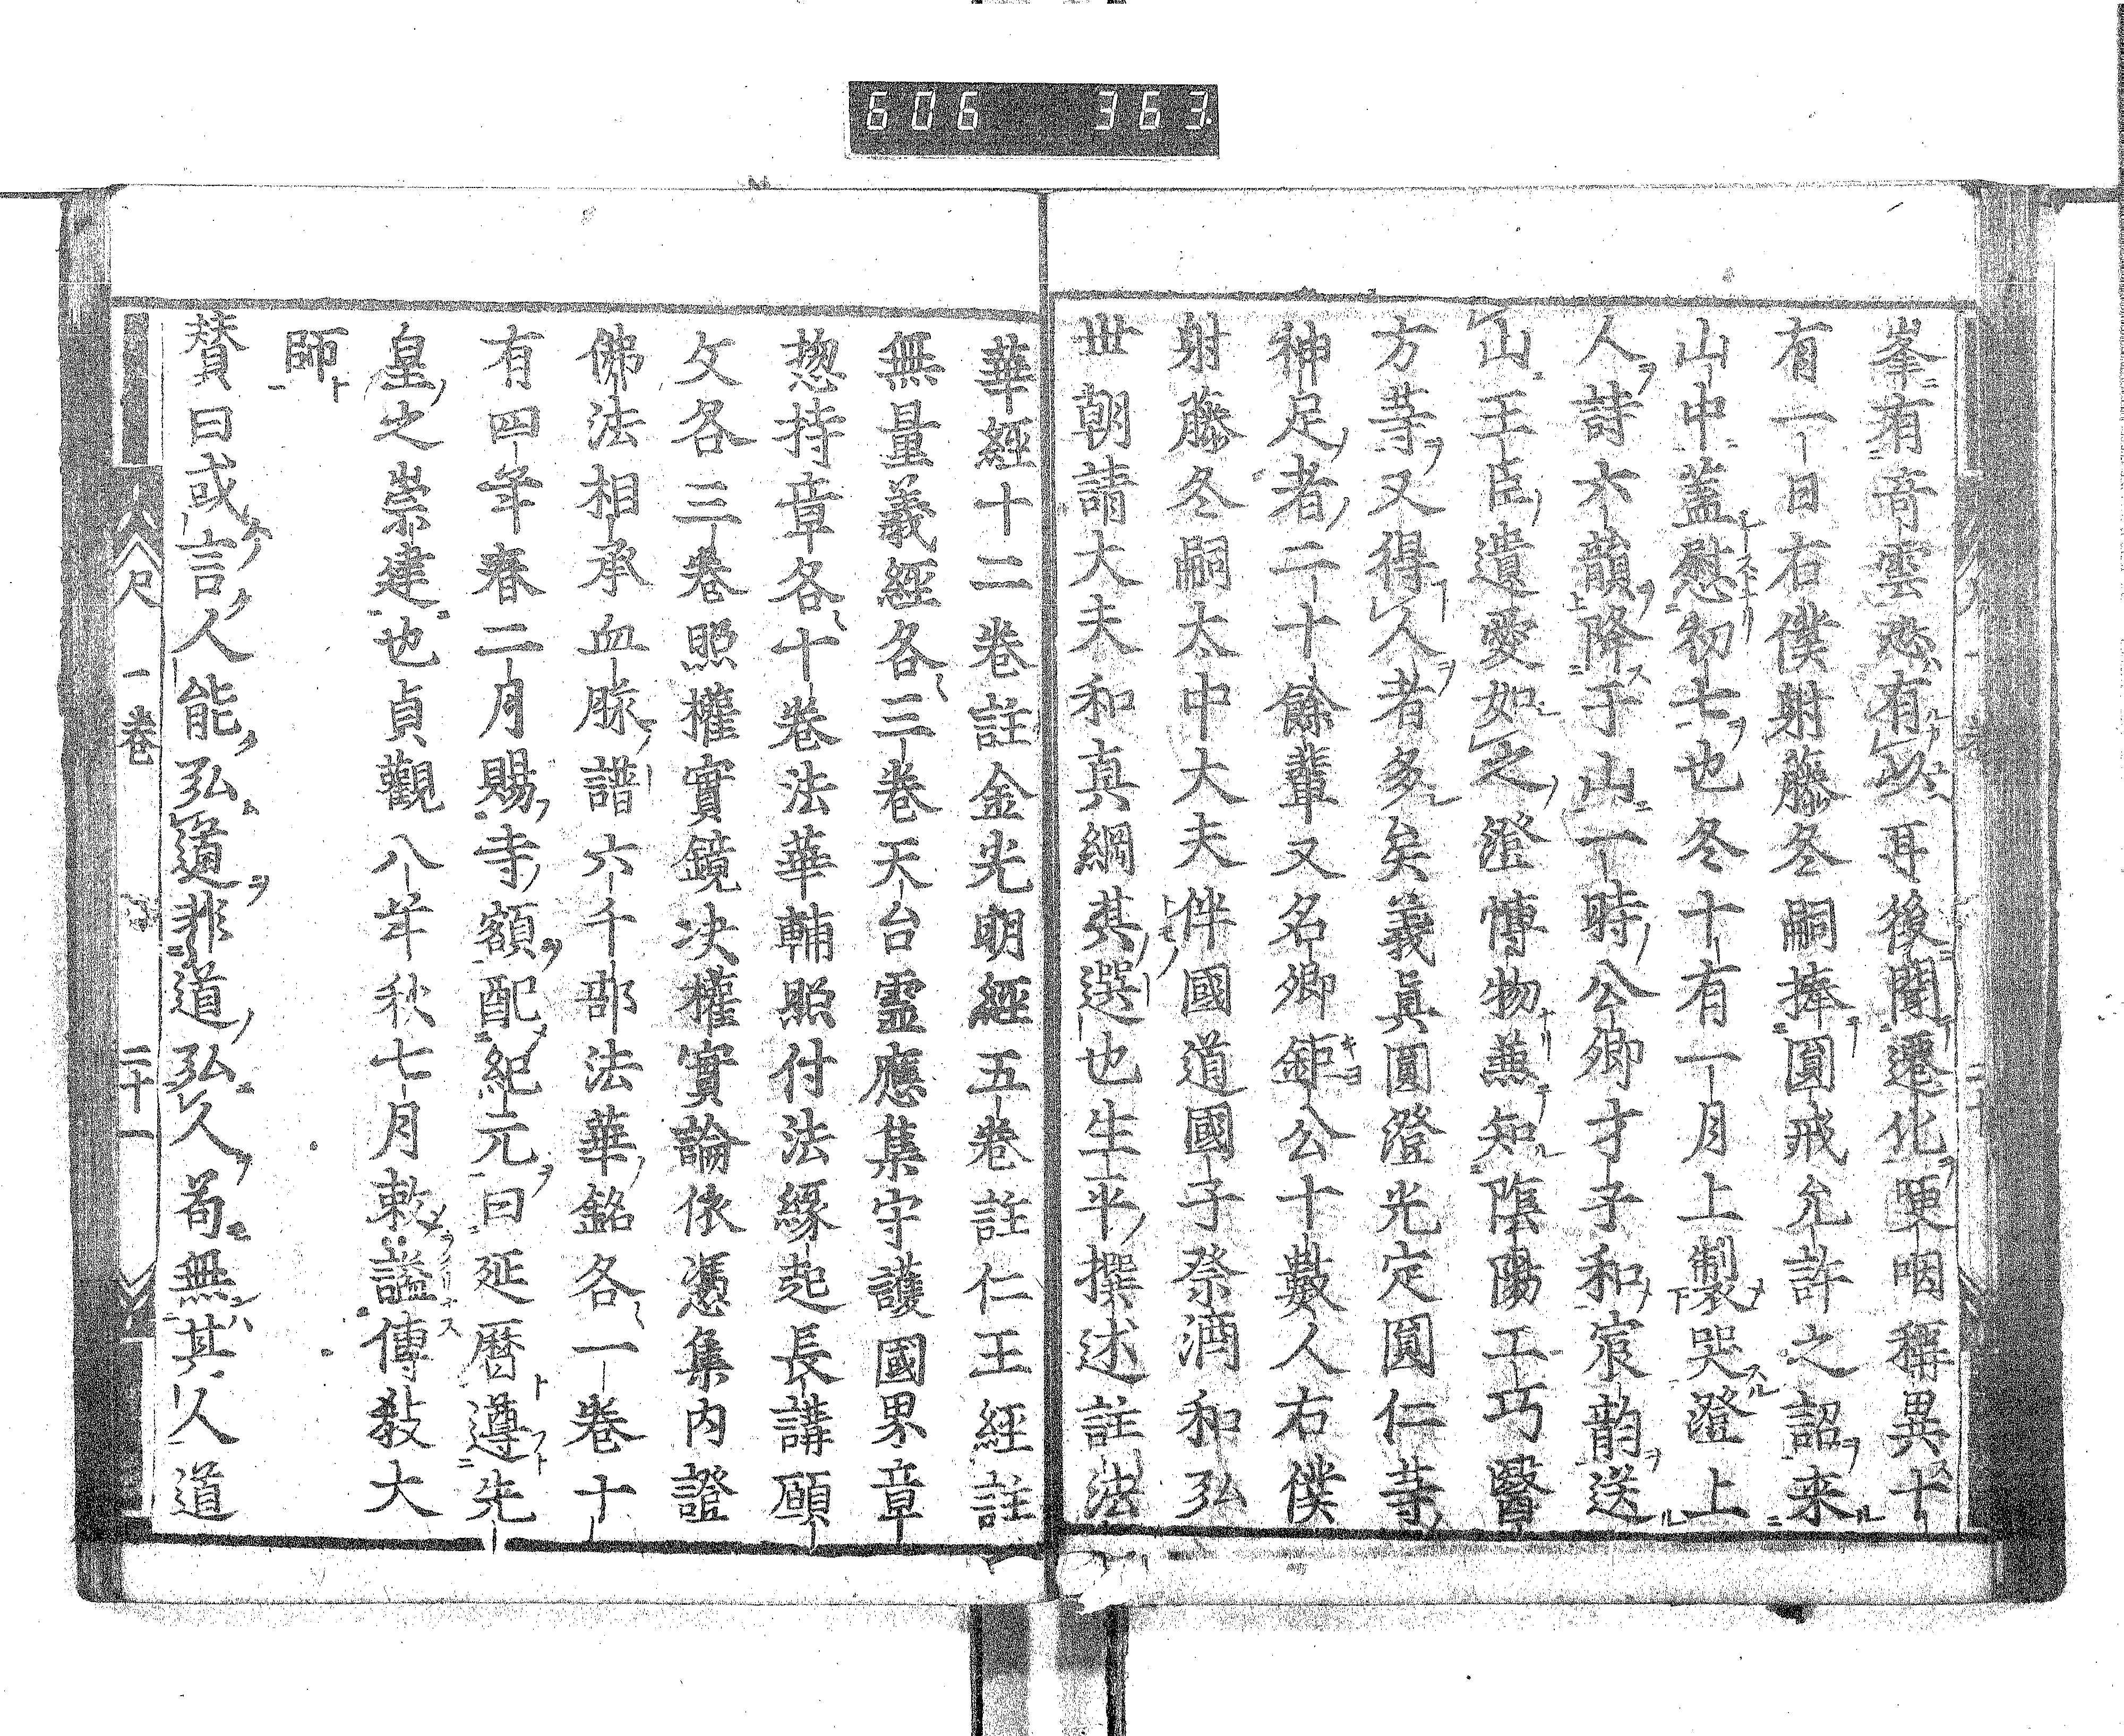 606 363
峯有奇雲恐有以耳後聞遷化哽咽稱異十
有一日右僕射藤冬嗣捧圓戒允許之詔来
山中蓋慰初七也冬十有一月上製哭澄上
人詩六韻降于山一時公卿才子和宸韵送
山王臣遺愛如之澄愽物兼知陰陽工巧醫
方䓁又得人者多矣義眞圓澄光定圓仁䓁
神足者二十餘輩又名卿鉅公十數人右僕
射藤冬嗣太中大夫伴國道國子祭酒和弘
世朝請大夫和真綱其選也生平撰述註法
華經十二卷註金光明經五卷註仁王經註
無量義經各三卷天台霊應集守護國界章
惣持章各十卷法華輔照付法緣起長講願
文各三卷照權實鏡决權實論依憑集内證
佛法相承血脉譜六千部法華銘各一卷十
有四年春二月賜寺額配紀元曰延暦遵先
皇之崇建也貞觀八年秋七月敕謚傳敎大
師
賛曰或言人能弘道非道弘人茍無其人道
一卷 二十一